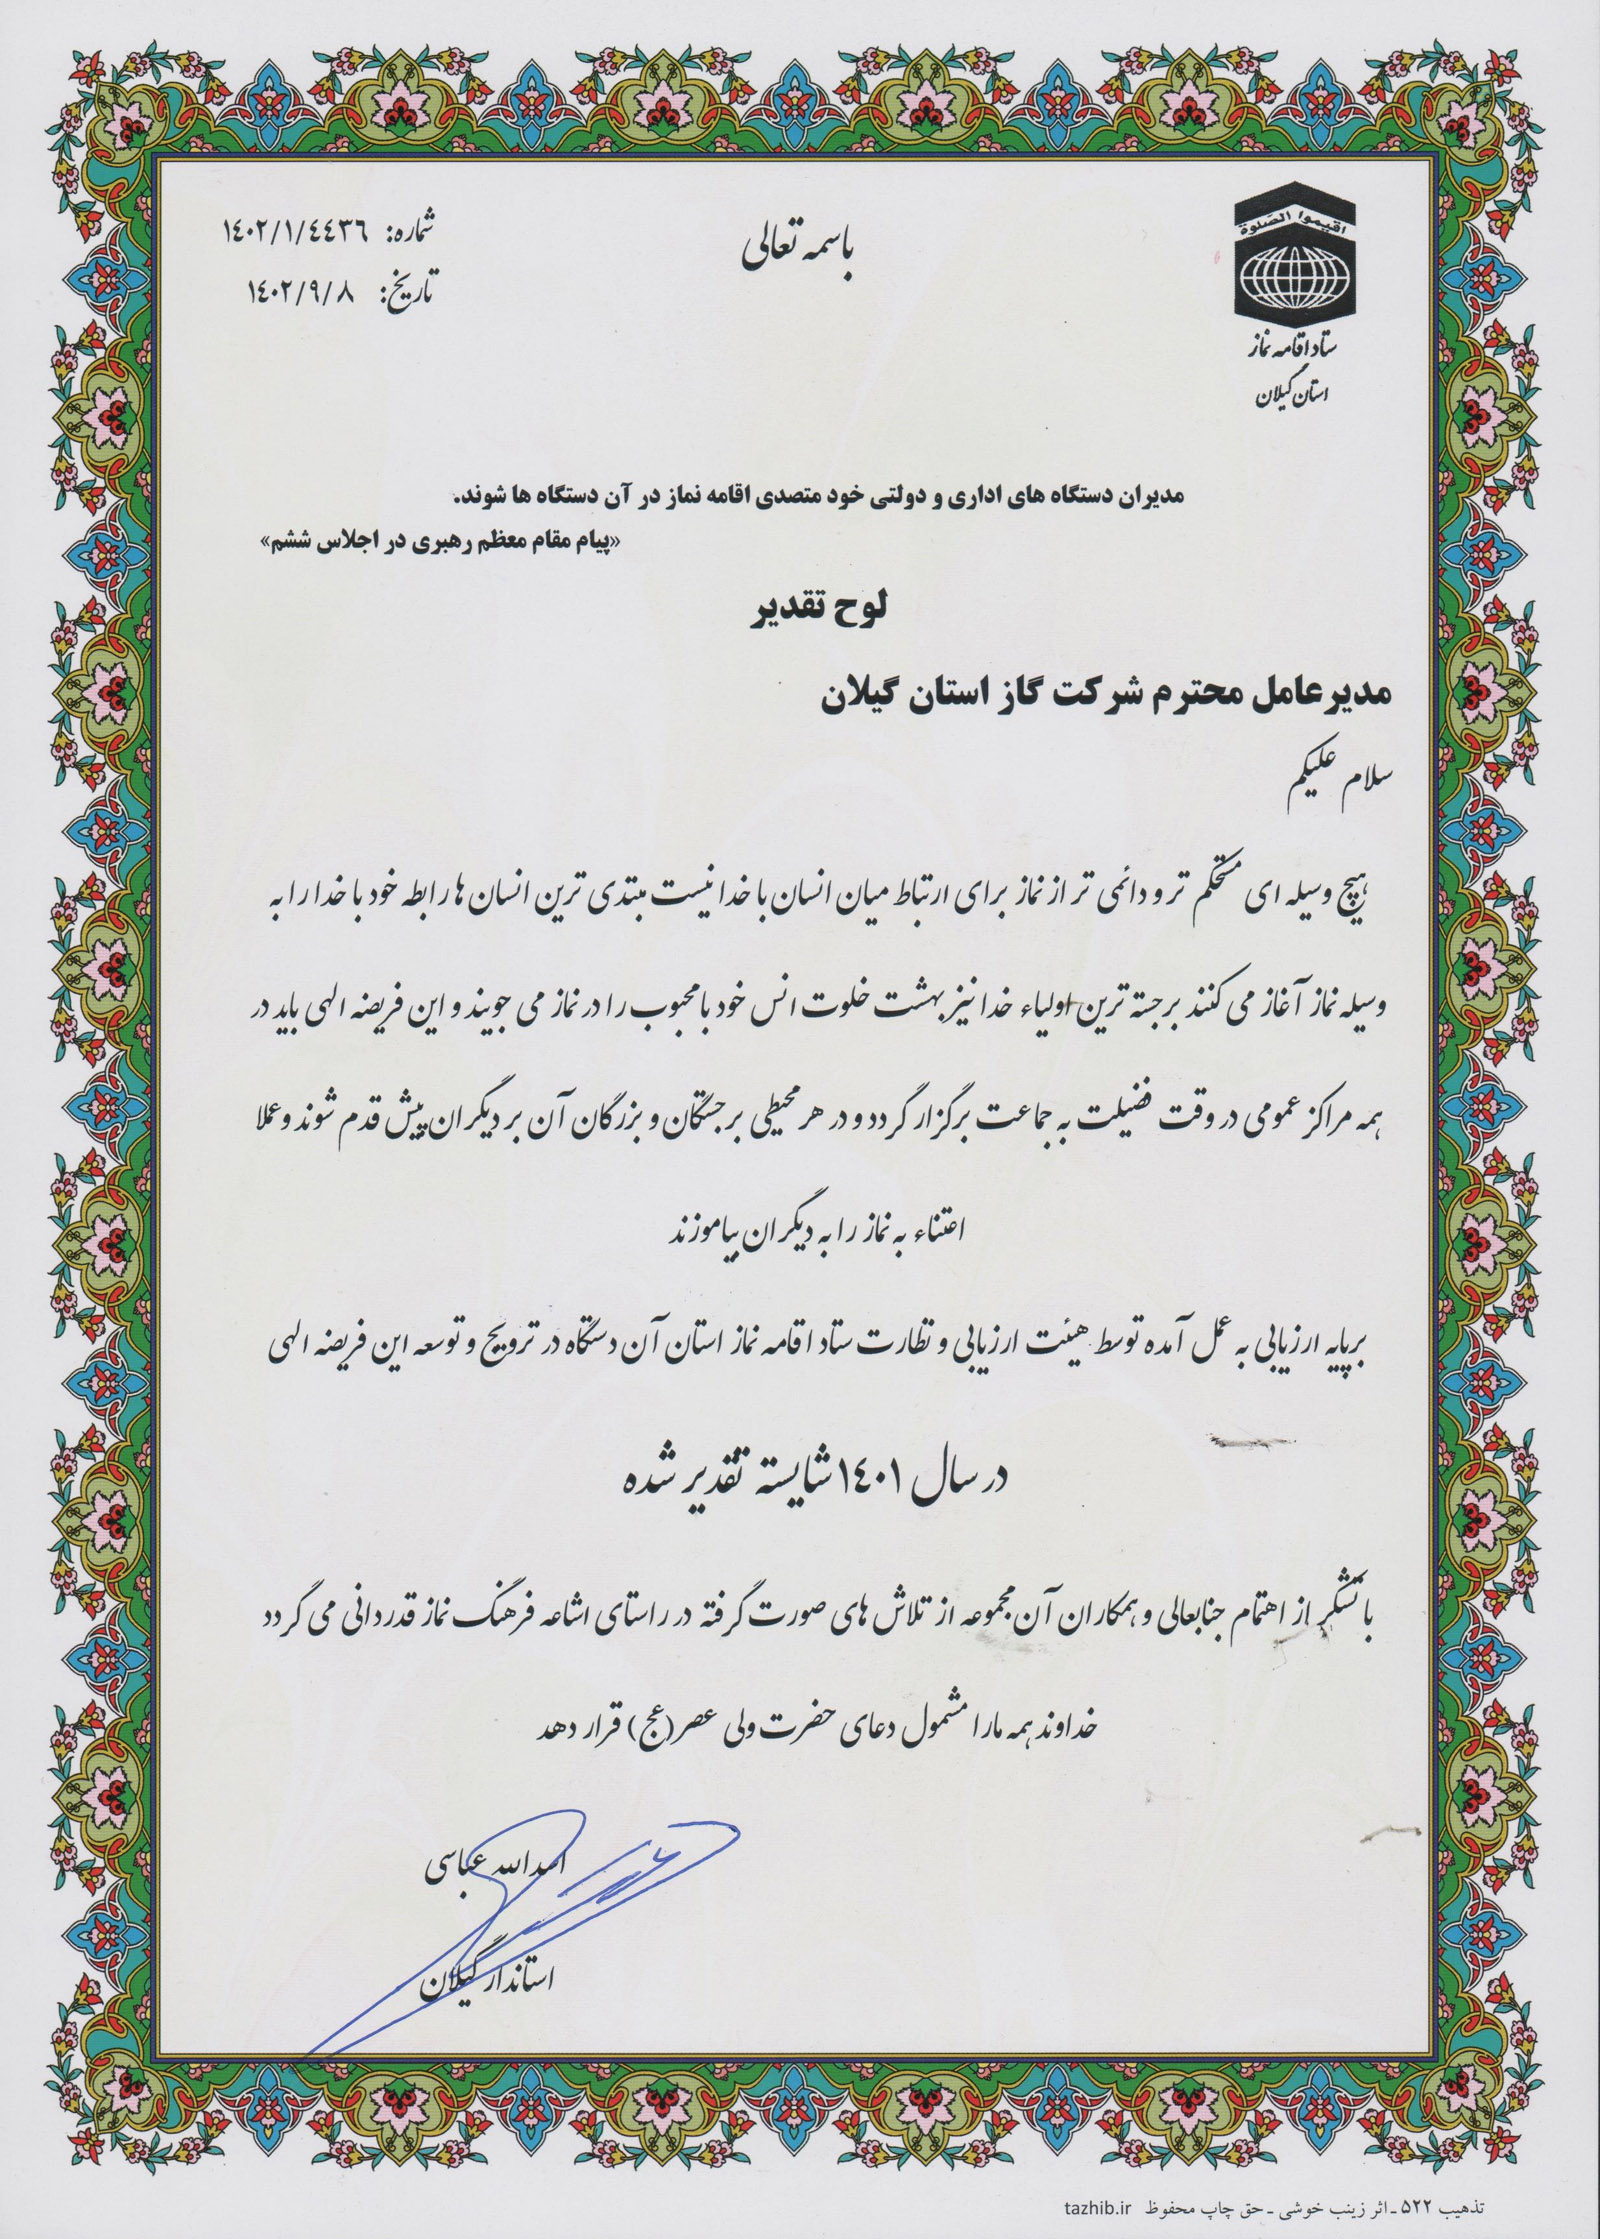 باسمه تعالی
اقیموا الصلوة
ستاد اقامه نماز
استان گیلان
شماره: ۱۴۰۲/۱/۴۴۳۶
تاریخ: ۱۴۰۲/۹/۸
مدیران دستگاه های اداری و دولتی خود متصدی اقامه نماز در آن دستگاه ها شوند.
«پیام مقام معظم رهبری در اجلاس ششم»
لوح تقدیر
مدیرعامل محترم شرکت گاز استان گیلان
سلام علیکم
هیچ وسیله ای مستحکم تر و دائمی تر از نماز برای ارتباط میان انسان با خدا نیست مبتدی ترین انسان ها رابطه خود با خدا را به
وسیله نماز آغاز می کنند برجسته ترین اولیاء خدا نیز بهشت خلوت انس خود با محبوب را در نماز می جویند و این فریضه الهی باید در
همه مراکز عمومی در وقت فضیلت به جماعت برگزار گردد و در هر محیطی برجستگان و بزرگان آن بر دیگران پیش قدم شوند و عملا
اعتناء به نماز را به دیگران بیاموزند
برپایه ارزیابی به عمل آمده توسط هیئت ارزیابی و نظارت ستاد اقامه نماز استان آن دستگاه در ترویج و توسعه این فریضه الهی
در سال ۱۴۰۱ شایسته تقدیر شده
با تشکر از اهتمام جنابعالی و همکاران آن مجموعه از تلاش های صورت گرفته در راستای اشاعه فرهنگ نماز قدردانی می گردد
خداوند همه ما را مشمول دعای حضرت ولی عصر(عج) قرار دهد
اسدالله عباسی
استاندار گیلان
تذهیب ۵۲۲ - اثر زینب خوشی - حق چاپ محفوظ tazhib.ir